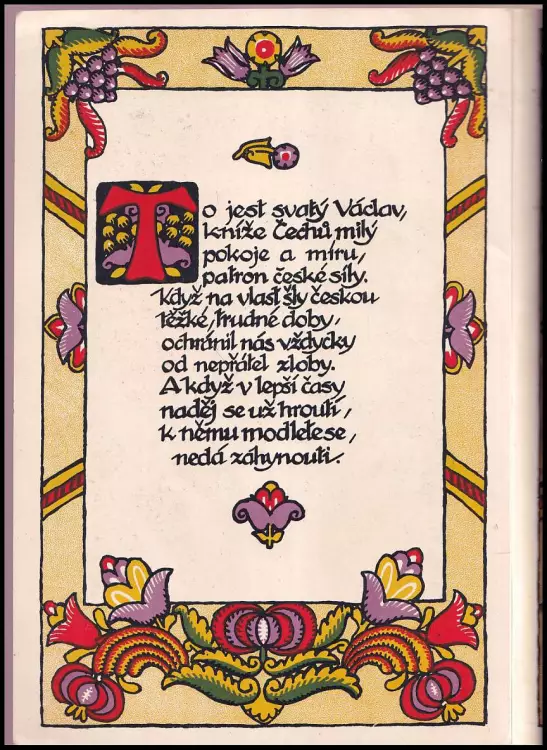 To jest svatý Václav,
kníže Čechů milý
pokoje a míru,
patron české síly.
Když na vlast šly českou
těžké, trudné doby,
ochránil nás vždycky
od nepřátel zloby.
A když v lepší časy
naděj se už hroutí,
k němu modlete se,
nedá záhynouti.